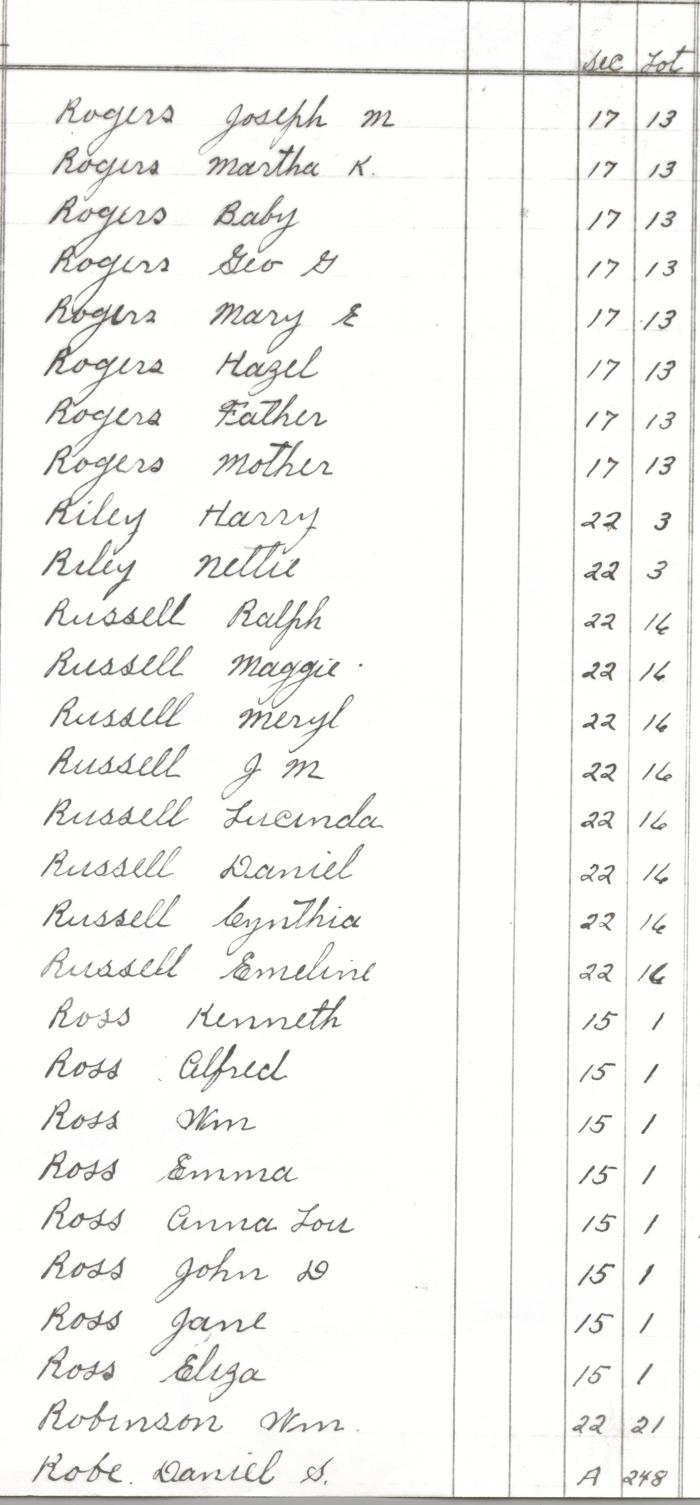 Sec Lot
Rogers Joseph M 17 13
Rogers Martha K. 17 13
Rogers Baby 17 13
Rogers Geo G 17 13
Rogers Mary E 17 13
Rogers Hazel 17 13
Rogers Father 17 13
Rogers Mother 17 13
Riley Harry 22 3
Riley Nettie 22 3
Russell Ralph 22 16
Russell Maggie 22 16
Russell Meryl 22 16
Russell J M 22 16
Russell Lucinda 22 16
Russell Daniel 22 16
Russell Cynthia 22 16
Russell Emeline 22 16
Ross Kenneth 15 1
Ross Alfred 15 1
Ross Wm 15 1
Ross Emma 15 1
Ross Anna Lou 15 1
Ross John D 15 1
Ross Jane 15 1
Ross Eliza 15 1
Robinson Wm. 22 21
Robe. Daniel S. A 248